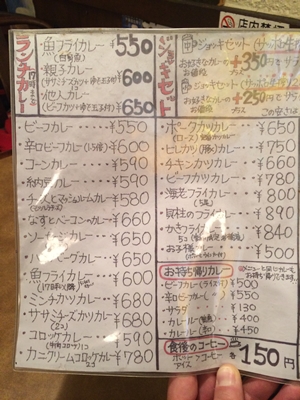 ランチカレー
17時まで
魚フライカレー ¥550
(白身魚)
親子カレー ¥600
他人カレー ¥650
ビーフカレー ¥550
辛口ビーフカレー(1.5倍) ¥600
コーンカレー ¥590
納豆カレー ¥590
チーズとマッシュルームカレー ¥580
なすとベーコンのカレー ¥660
ソーセージカレー ¥650
ハンバーグカレー ¥650
魚フライカレー ¥600
ミンチカツカレー ¥680
ササミチーズカツカレー ¥680
(2コ)
コロッケカレー ¥590
カニクリームコロッケカレー ¥780
(2コ)
店内禁
ジョッキセット
お好きなカレーの
お値段 +350円
お好きなカレーの
お値段 +250円
ポークカツカレー ¥650
ヒレカツ(豚)カレー ¥750
チキンカツカレー ¥660
ビーフカツカレー ¥780
海老フライカレー ¥800
貝柱のフライカレー ¥890
かきフライカレー ¥840
お子様カレー ¥500
お持ち帰りカレー
ビーフカレー(ライス付) ¥500
辛口ビーフカレー(〃) ¥550
サラダ ¥130
カレールー ¥400
カレールー ¥450
食後のコーヒー
ホットコーヒー
アイス
各150円